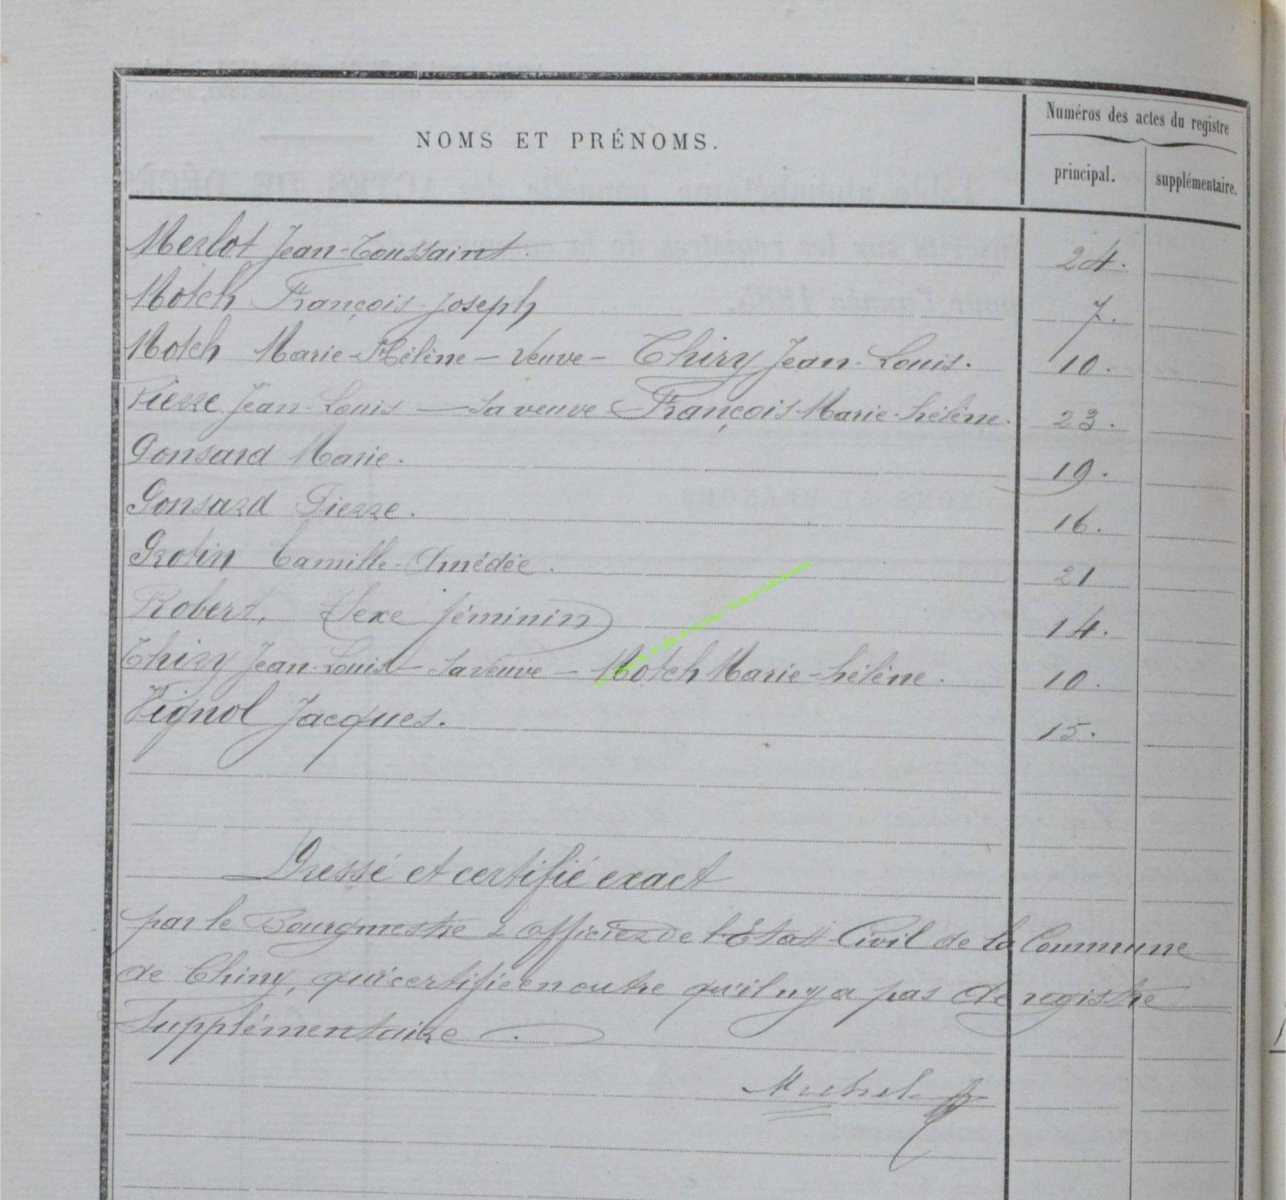 NOMS ET PRÉNOMS.
Numéros des actes du registre
principal. supplémentaire.
Merlot Jean-Toussaint. 24.
Motch François-Joseph 7.
Motch Marie-Hélène - Veuve - Thiry Jean-Louis. 10.
Pierre Jean-Louis - sa veuve François Marie-hélène. 23.
Ponsard Marie. 19.
Ponsard Pierre. 16.
Protin Camille-Amédée. 21
Robert, Sexe féminin 14.
Thiry Jean-Louis - sa veuve - Motch Marie-hélène. 10.
Vignol Jacques. 15.
Dressé et certifié exact
par le Bourgmestre officier de l'Etat Civil de la Commune
de Chiny, qui certifie en outre qu'il n'y a pas de registre
supplémentaire.
Michel